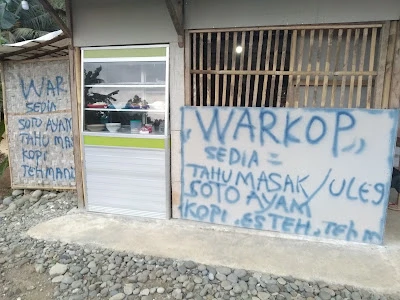 WAR
SEDIA
SOTO AYAM
TAHU MA
KOPI
TEH MANI
WARKOP
SEDIA =
TAHU MASAK/ULEG
SOTO AYAM
KOPI, ES TEH, TEH M